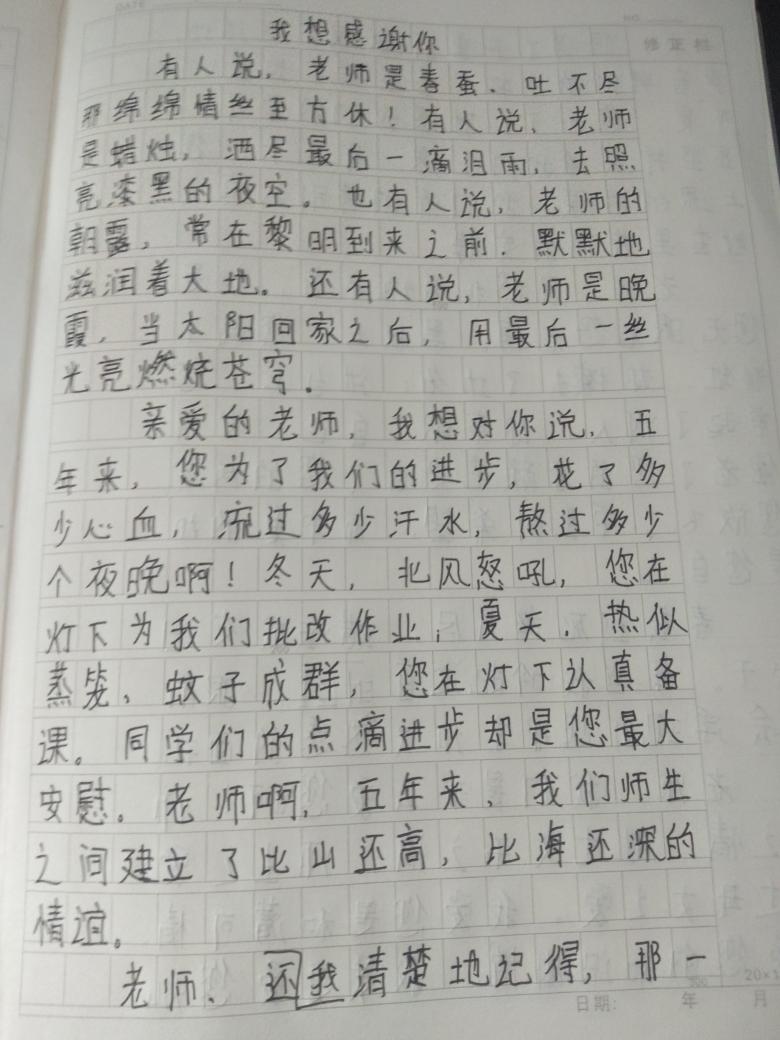 我想感谢你
有人说，老师是春蚕，吐不尽
那绵绵情丝至方休！有人说，老师
是蜡烛，洒尽最后一滴泪雨，去照
亮漆黑的夜空。也有人说，老师的
朝露，常在黎明到来之前，默默地
滋润着大地。还有人说，老师是晚
霞，当太阳回家之后，用最后一丝
光亮燃烧苍穹。
亲爱的老师，我想对你说，五
年来，您为了我们的进步，花了多
少心血，流过多少汗水，熬过多少
个夜晚啊！冬天，北风怒吼，您在
灯下为我们批改作业，夏天，热似
蒸笼、蚊子成群，您在灯下认真备
课。同学们的点滴进步却是您最大
安慰。老师啊，五年来，我们师生
之间建立了比山还高，比海还深的
情谊。
老师、还我清楚地记得，那一
DATE
NO
修正栏
日期: 年 月